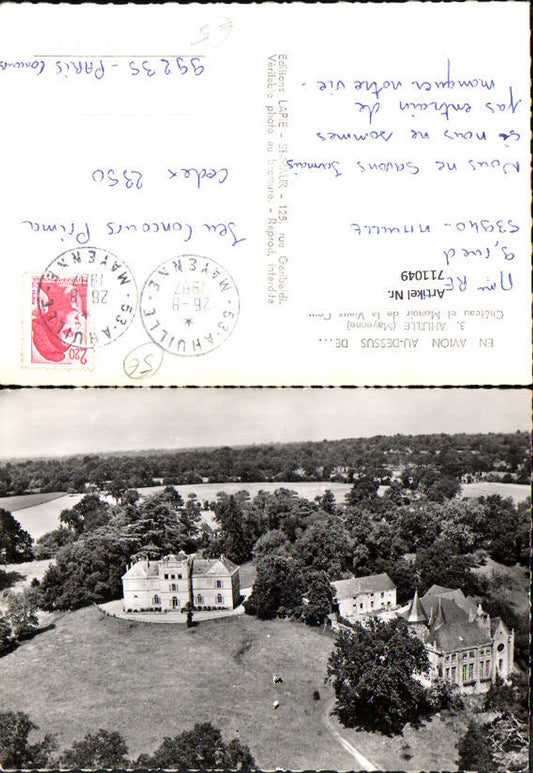 EN AVION AU-DESSUS DE...
3. AHUILLÉ (Mayenne)
Château et Manoir de la Vieux Cour
Artikel Nr.
711049
Mme RE
9, rue d
53940 - AHUILLE
Nous ne savons jamais
si nous ne sommes
pas entrain de
manquer notre vie -
Editions LAPIE - St-MAUR - 125, rue Gambetta
Véritable photo au bromure. - Reprod. interdite
53-AHUILLE
MAYENNE
26-8
1987
53-AHUILLE
MAYENNE
26-8
2,20
Jeu Concours Prima
Cedex 2350
99235 - PARIS Concours